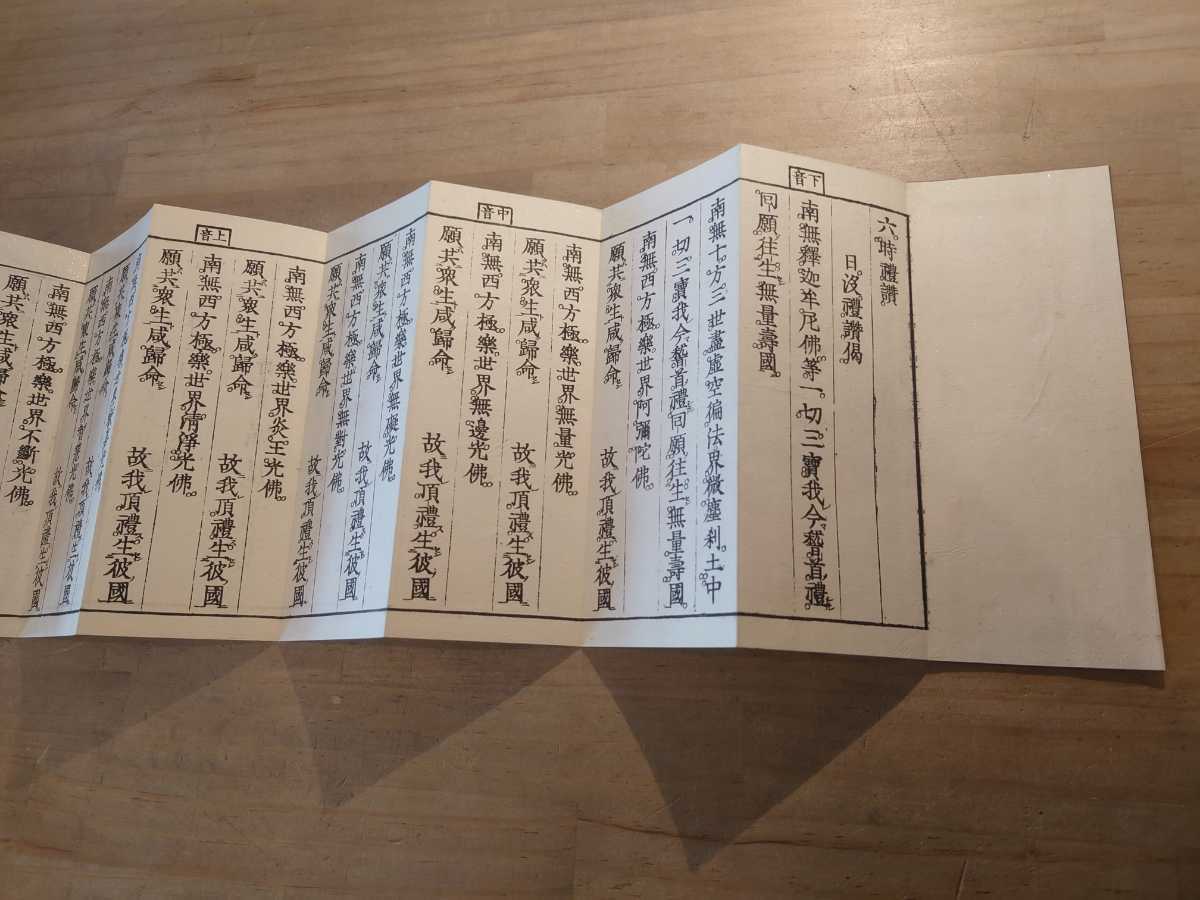 六時禮讚
日没禮讚偈
下音
南無釋迦牟尼佛等一切三寶我今稽首禮
囘願往生無量壽國
南無十方三世盡虚空徧法界微塵刹土中
一切三寶我今稽首禮囘願往生無量壽國
南無西方極樂世界阿彌陀佛
願共衆生咸歸命 故我頂禮生彼國
中音
南無西方極樂世界無量光佛
願共衆生咸歸命 故我頂禮生彼國
南無西方極樂世界無邊光佛
願共衆生咸歸命 故我頂禮生彼國
南無西方極樂世界無礙光佛
願共衆生咸歸命 故我頂禮生彼國
南無西方極樂世界無對光佛
願共衆生咸歸命 故我頂禮生彼國
上音
南無西方極樂世界炎王光佛
願共衆生咸歸命 故我頂禮生彼國
南無西方極樂世界清淨光佛
願共衆生咸歸命 故我頂禮生彼國
願共衆生咸歸命 故我頂禮生彼國
南無西方極樂世界智慧光佛
願共衆生咸歸命 故我頂禮生彼國
南無西方極樂世界不斷光佛
願共衆生咸歸命